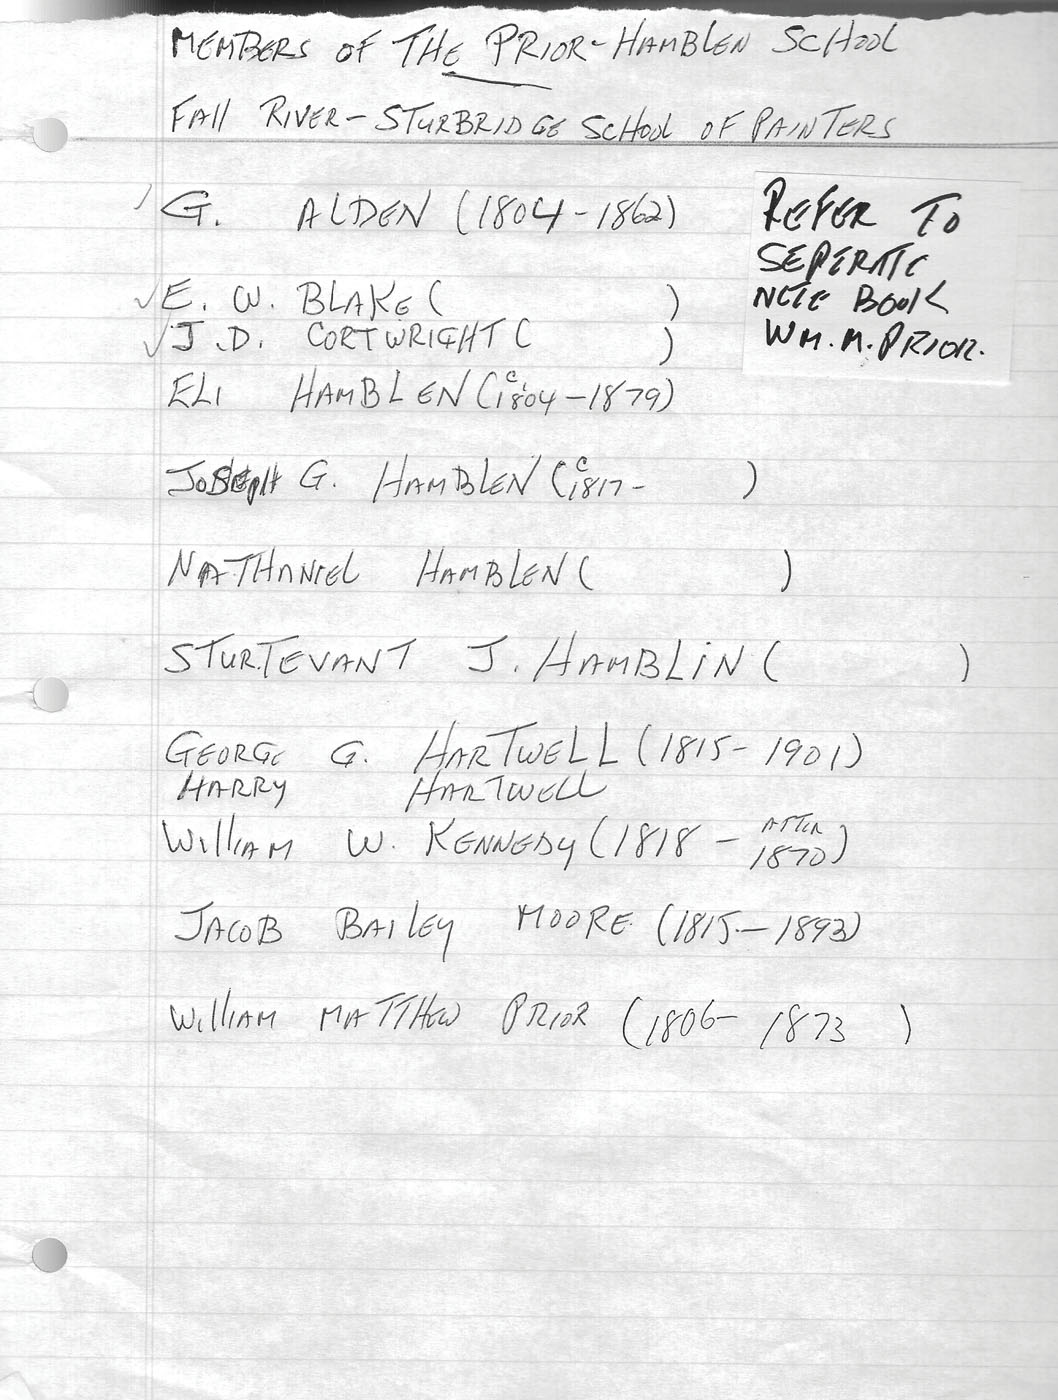 MEMBERS OF THE PRIOR-HAMBLEN SCHOOL
FALL RIVER-STURBRIDGE SCHOOL OF PAINTERS
G. ALDEN (1804-1862)
REFER TO
SEPERATE
NOTE BOOK
WM. M. PRIOR.
E. W. BLAKE ( )
J.D. CORTWRIGHT ( )
ELI HAMBLEN (c. 1804-1879)
JOSEPH G. HAMBLEN (c 1817- )
NATHANIEL HAMBLEN ( )
STURTEVANT J. HAMBLIN ( )
GEORGE G. HARTWELL (1815-1901)
HARRY HARTWELL
WILLIAM W. KENNEDY (1818 - AFTER 1870)
JACOB BAILEY MOORE (1815-1893)
WILLIAM MATTHEW PRIOR (1806-1873 )